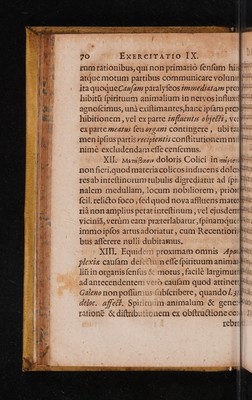 70 EXERCITATIO IX.
rum rationibus, qui non primariò sensum
atque motum partibus communicare
ita quoque Causam paralyseos immediatam
hibiti spirituum animalium in nervos
agnoscimus, unà existimantes, hanc ipsam
hibitionem, vel ex parte influentis objecti, vel
ex parte meatus seu organi contingere, ubi
men ipsius partis recipientis constitutionem
nimè excludendam esse censemus.
XII. doloris Colici in
non fieri, quod materia colicos inducens
res ab intestinorum tubulis egrediatur ad
nalem medullam, locum nobiliorem,
scil. relicto foco, sed quod nova affluens
ria non amplius petat intestinum, vel ejusdem
viciniâ, verùm eam præterlabatur,
immo ipsos artus adoriatur, cum
bus asserere nulli dubitamus.
XIII. Equidem proximam omnis
plexiæ causam defectum esse spirituum
in organis sensus & motus, facilè
ad antecedentem verò causam quod
Galeno non possumus subscribere, quando
affect. Spirituum animalium &
ratione & distributionem ex obstructione
rebri